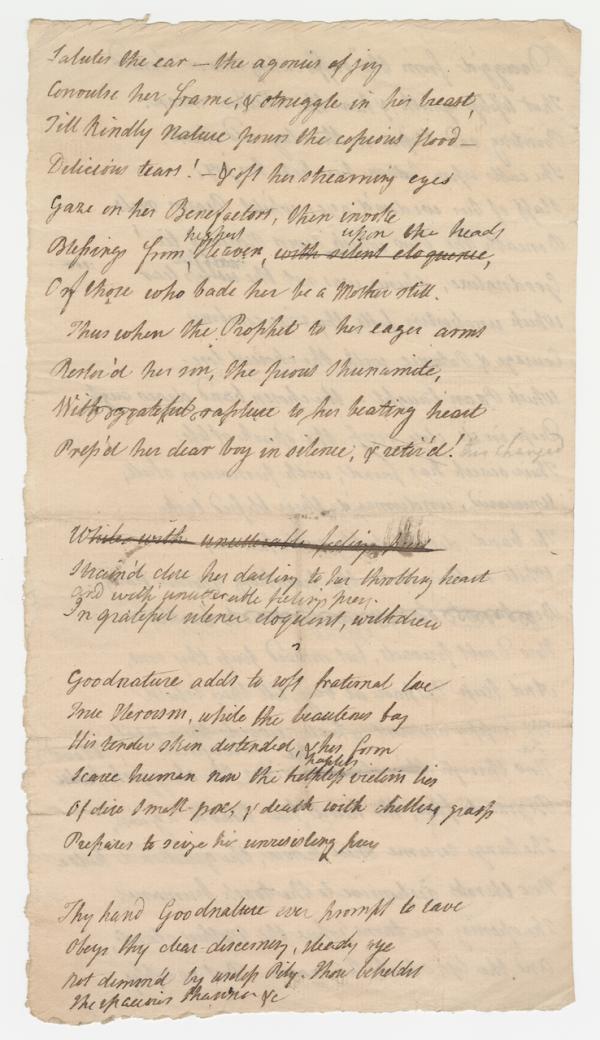 Salutes the ear – the agonies of joy
Convulse her frame, & struggle in her breast,
Till kindly Nature pours the copious flood –
Delicious tears! – & oft her streaming eyes
Gaze on her Benefactors, then invoke
highest upon the heads
Blessings from Heaven, with silent eloquence,
Of those who bade her be a Mother still.
Thus when the Prophet to her eager arms
Restor'd her son, the pious Shunamite,
With grateful rapture to her beating heart
Press'd her dear boy in silence, & retir'd!
While with unutterable feeling
Strain'd close her darling to her throbbing heart
and with unutterable feeling
In grateful silence eloquent, withdrew
Goodnature adds to soft fraternal love
True Heroism, while the beauteous boy
His tender skin distended, & his form
hapless
Scarce human now the helpless victim lies
Of dire Small-pox, & death with chilling grasp
Prepares to seize his unresisting prey
Thy hand Goodnature ever prompt to save
Obeys thy clear-discerning, steady eye
Not dimm'd by useless Pity. Thou beheldst
The spacious &c